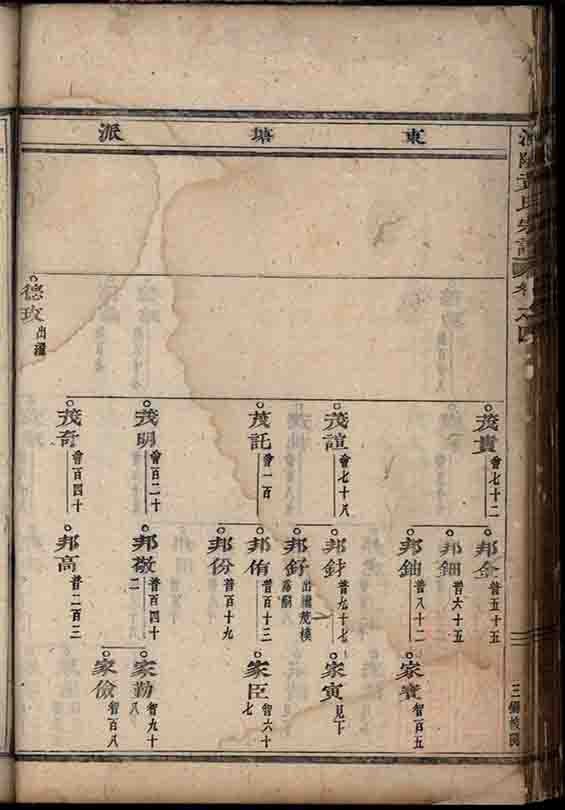 東塘派
德玫 出繼
茂貴 會七十二
茂誼 會七十八
茂託 會一百
茂明 會百二十
茂奇 會百四十
邦金 普五十五
邦鈿 普六十五
邦鈾 普八十二
邦針 普九十七
邦釪 出繼茂樸為嗣
邦侑 普百十三
邦份 普百十九
邦敬 普百四十二
邦高 普二百三
家賓 智百五
家寅 見下
家臣 智六十七
家勤 智九十八
家儉 智百八